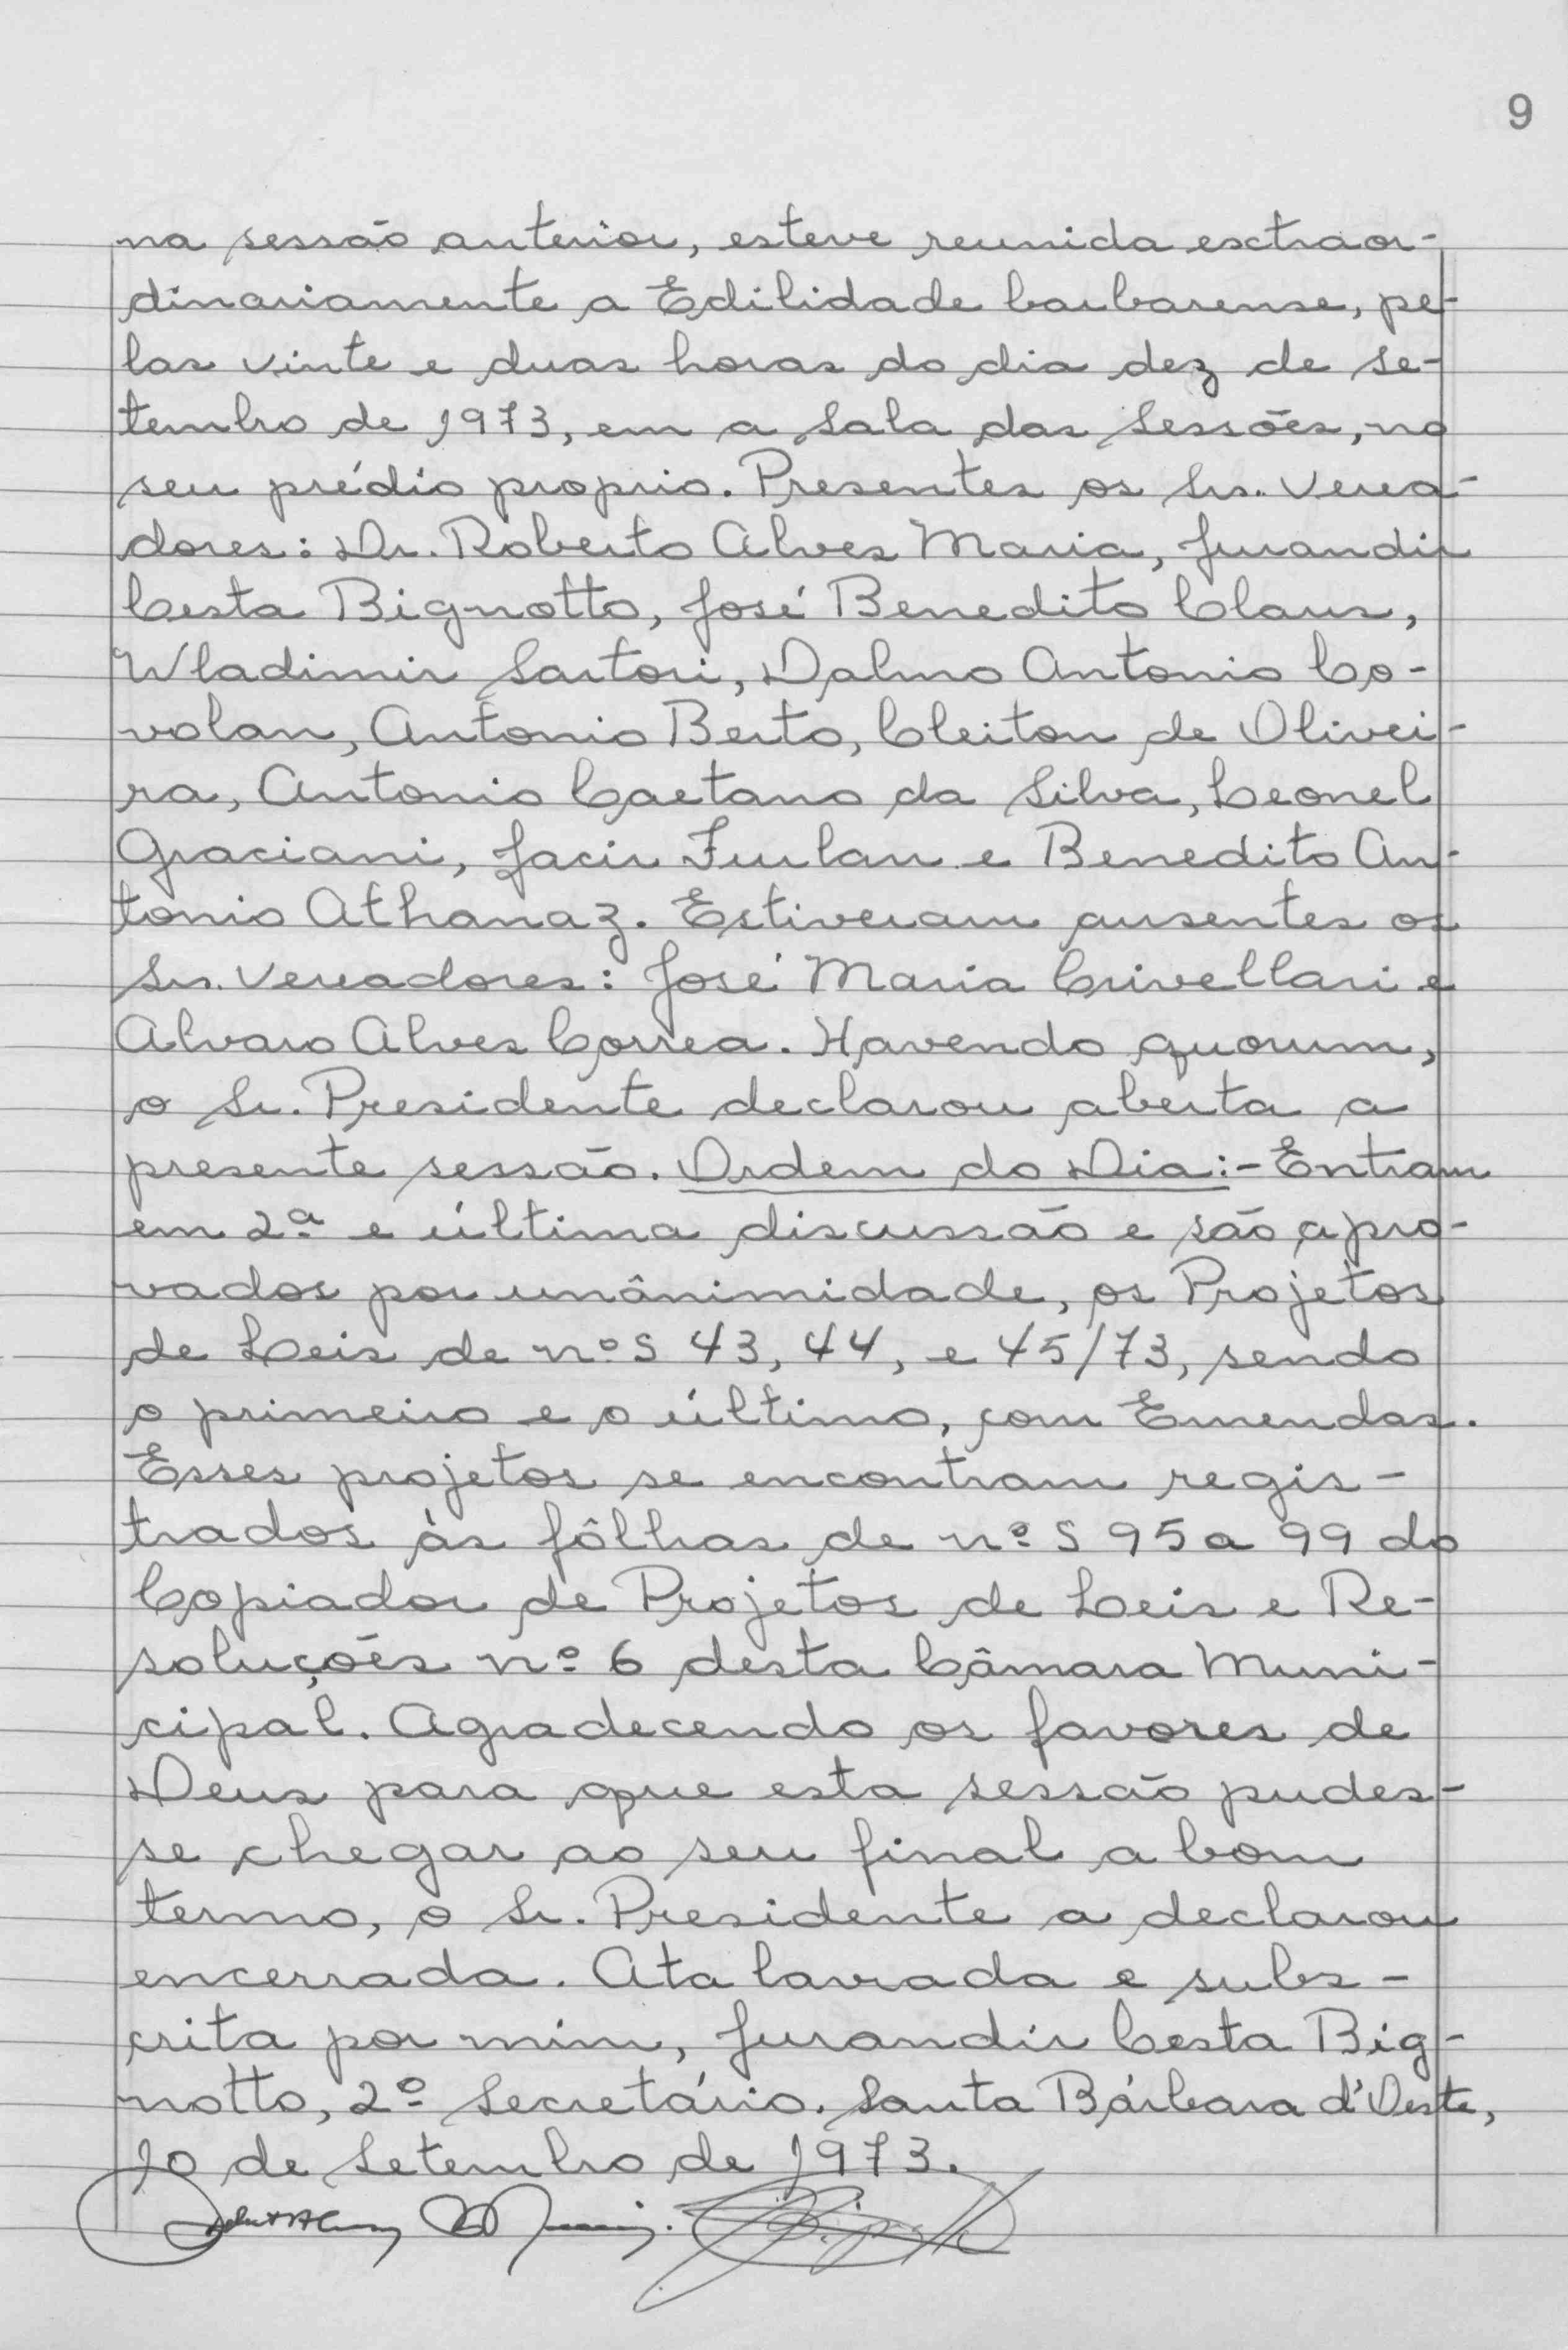 9
na sessão anterior, esteve reunida extraor-
dinariamente a Edilidade barbarense, pe-
las vinte e duas horas do dia dez de se-
tembro de 1973, em a Sala das Sessões, no
seu prédio proprio. Presentes os Srs. Verea-
dores: Dr. Roberto Alves Maria, Jurandir
Cesta Bignotto, José Benedito Claus,
Wladimir Sartori, Dalmo Antonio Co-
volan, Antonio Berto, Cleiton de Olivei-
ra, Antonio Caetano da Silva, Leonel
Graciani, Jacir Furlan e Benedito An-
tonio Athanaz. Estiveram ausentes os
Srs. Vereadores: José Maria Crivellari e
Alvaro Alves Correa. Havendo quorum,
o Sr. Presidente declarou aberta a
presente sessão. Ordem do Dia:- Entram
em 2ª e última discussão e são apro-
vados por unânimidade, os Projetos
de Leis de nºs 43, 44, e 45/73, sendo
o primeiro e o último, com Emendas.
Esses projetos se encontram regis-
trados às fôlhas de nºs 95 a 99 do
Copiador de Projetos de Leis e Re-
soluções nº 6 desta Câmara Muni-
cipal. Agradecendo os favores de
Deus para que esta sessão pudes-
se chegar ao seu final a bom
termo, o Sr. Presidente a declarou
encerrada. Ata lavrada e subs-
crita por mim, Jurandir Cesta Big-
notto, 2º Secretário. Santa Bárbara d'Oeste,
10 de Setembro de 1973.